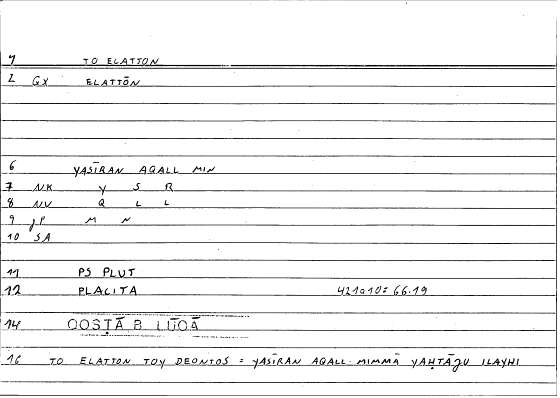 1 TO ELATTON
2 GX ELATTŌN
6 YASĪRAN AQALL MIN
7 NK Y S R
8 NV Q L L
9 JP M N
10 SA
11 PS PLUT
12 PLACITA 421a10= 66.19
14 QOSṬĀ B. LŪQĀ
16 TO ELATTON TOY DEONTOS = YASĪRAN AQALL MIMMĀ YAḤTĀǦU ILAYHI